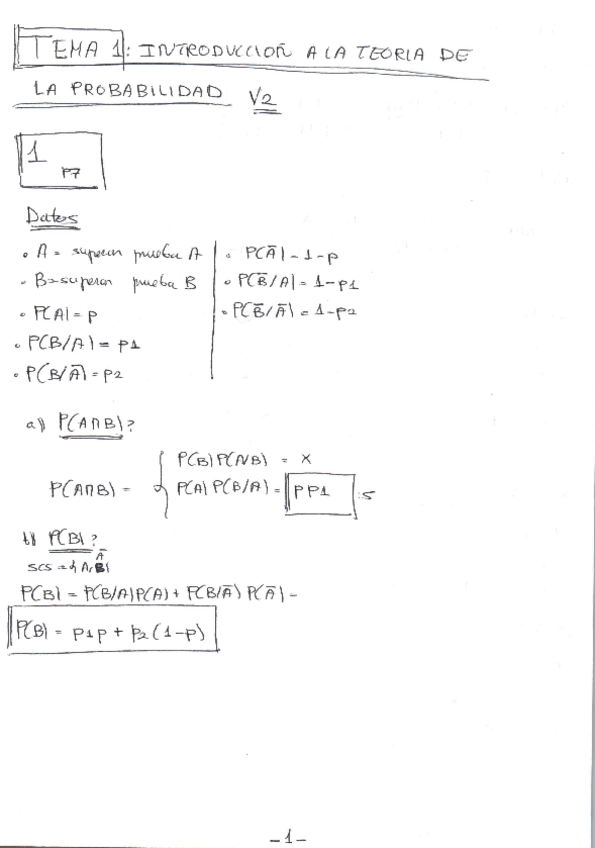 TEMA 1: INTRODUCCION A LA TEORIA DE
LA PROBABILIDAD V2
1
P7
Datos
• A = superan prueba A
• B = superan prueba B
• P(A) = p
• P(B/A) = p1
• P(B/Ā) = p2
• P(Ā) = 1-p
• P(B̄/A) = 1-p1
• P(B̄/Ā) = 1-p2
a) P(A∩B)?
P(A∩B) = { P(B) P(A/B) = x
P(A) P(B/A) = pp1
b) P(B)?
Ā
P(B) = P(B/A)P(A) + P(B/Ā) P(Ā) =
P(B) = p1p + p2(1-p)
-1-